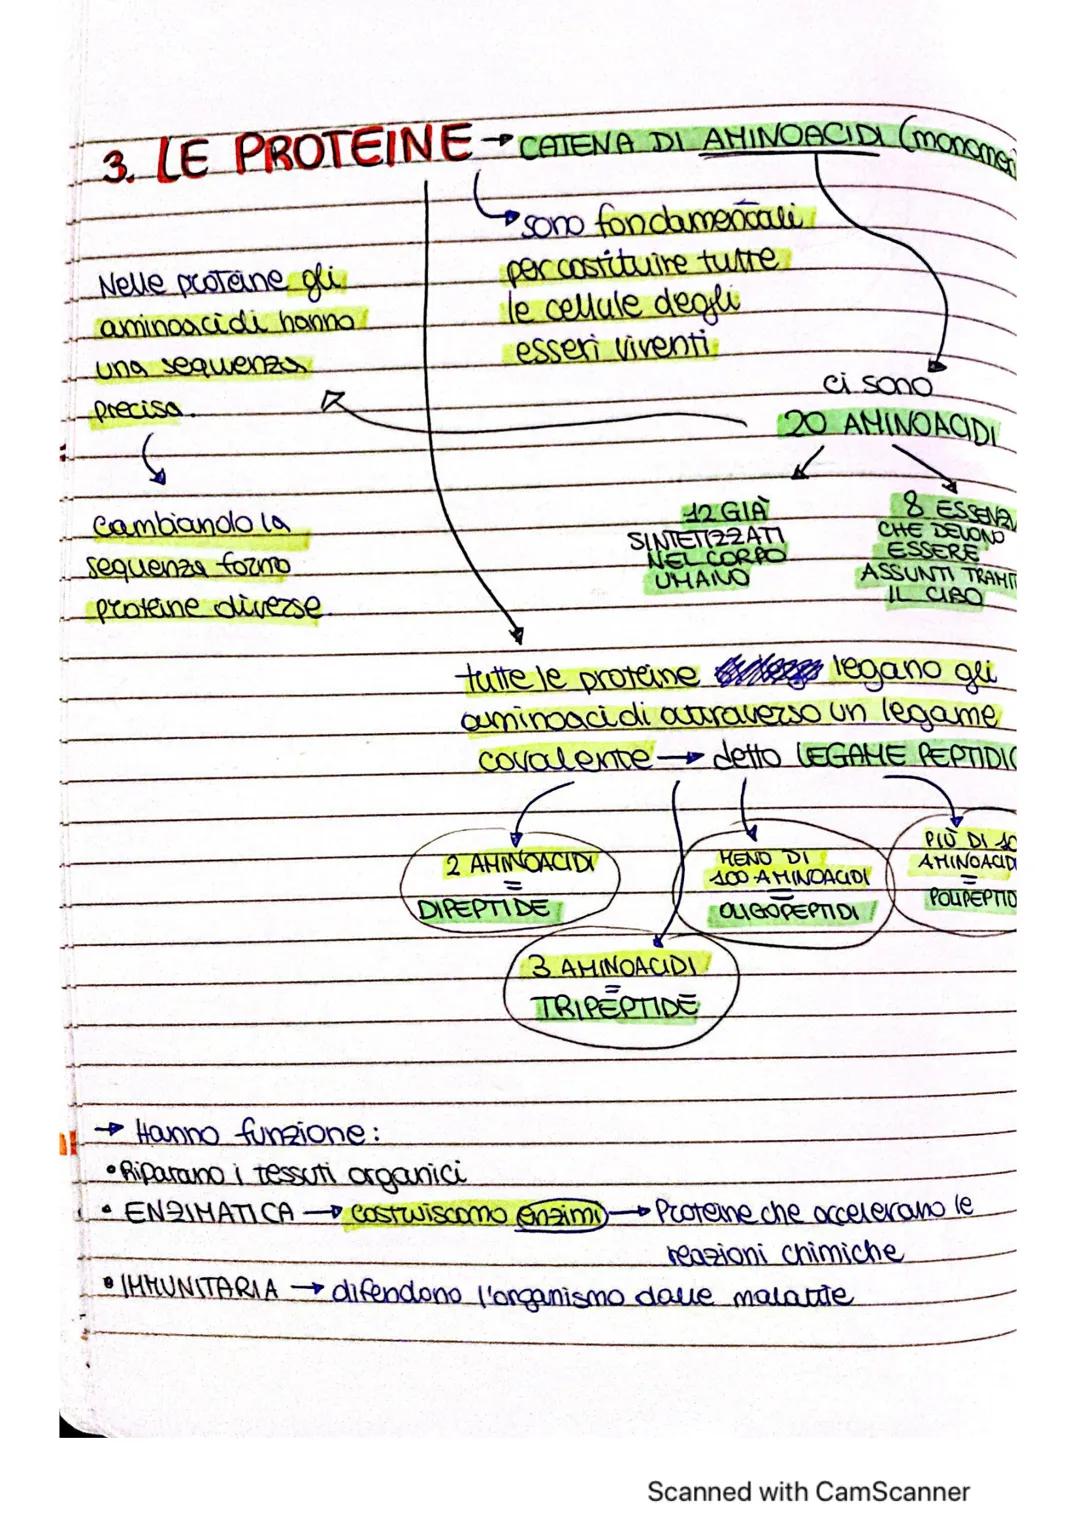 3. LE PROTEINE → CATENA DI AMINOACIDI (monomer
sono fondamentali
per costituire tutte
le cellule degli
esseri viventi
Nelle proteine gli
aminoacidi hanno
una sequenza
precisa.
ci sono
20 AMINOACIDI
12 GIÀ
SINTETIZZATI
NEL CORPO
UMANO
8 ESSENZ
CHE DEVONO
ESSERE
ASSUNTI TRAMIT
IL CIBO
Cambiando la
sequenza formo
proteine diverse
tutte le proteine legano gli
aminoacidi attraverso un legame
covalente → detto LEGAME PEPTIDIC
2 AMINOACIDI
=
DIPEPTIDE
3 AMINOACIDI
=
TRIPEPTIDE
MENO DI
100 AMINOACIDI
=
OLIGOPEPTIDI
PIÙ DI 10
AMINOACID
=
POLIPEPTID
→ Hanno funzione:
• Riparano i tessuti organici
• ENZIMATICA → costruiscono enzimi → Proteine che accelerano le
reazioni chimiche
• IMMUNITARIA → difendono l'organismo dalle malattie
Scanned with CamScanner